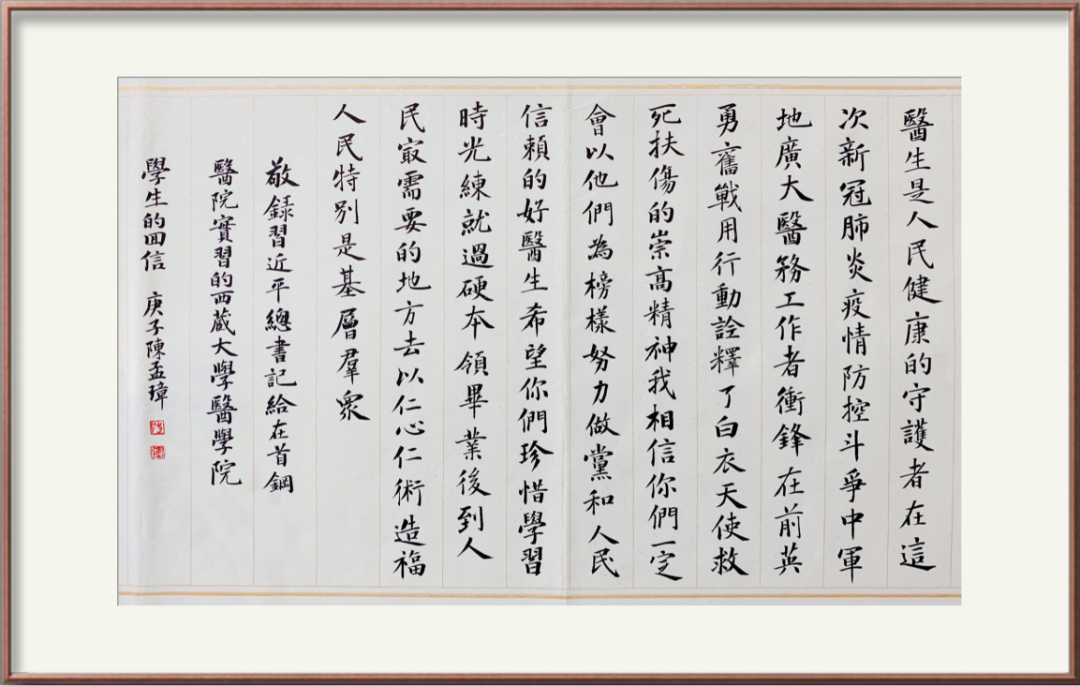 醫生是人民健康的守護者在這
次新冠肺炎疫情防控斗爭中軍
地廣大醫務工作者衝鋒在前英
勇奮戰用行動詮釋了白衣天使救
死扶傷的崇高精神我相信你們一定
會以他們為榜樣努力做黨和人民
信賴的好醫生希望你們珍惜學習
時光練就過硬本領畢業後到人
民最需要的地方去以仁心仁術造福
人民特別是基層羣衆
敬録習近平總書記給在首鋼
醫院實習的西藏大學醫學院
學生的回信 庚子陳孟璋